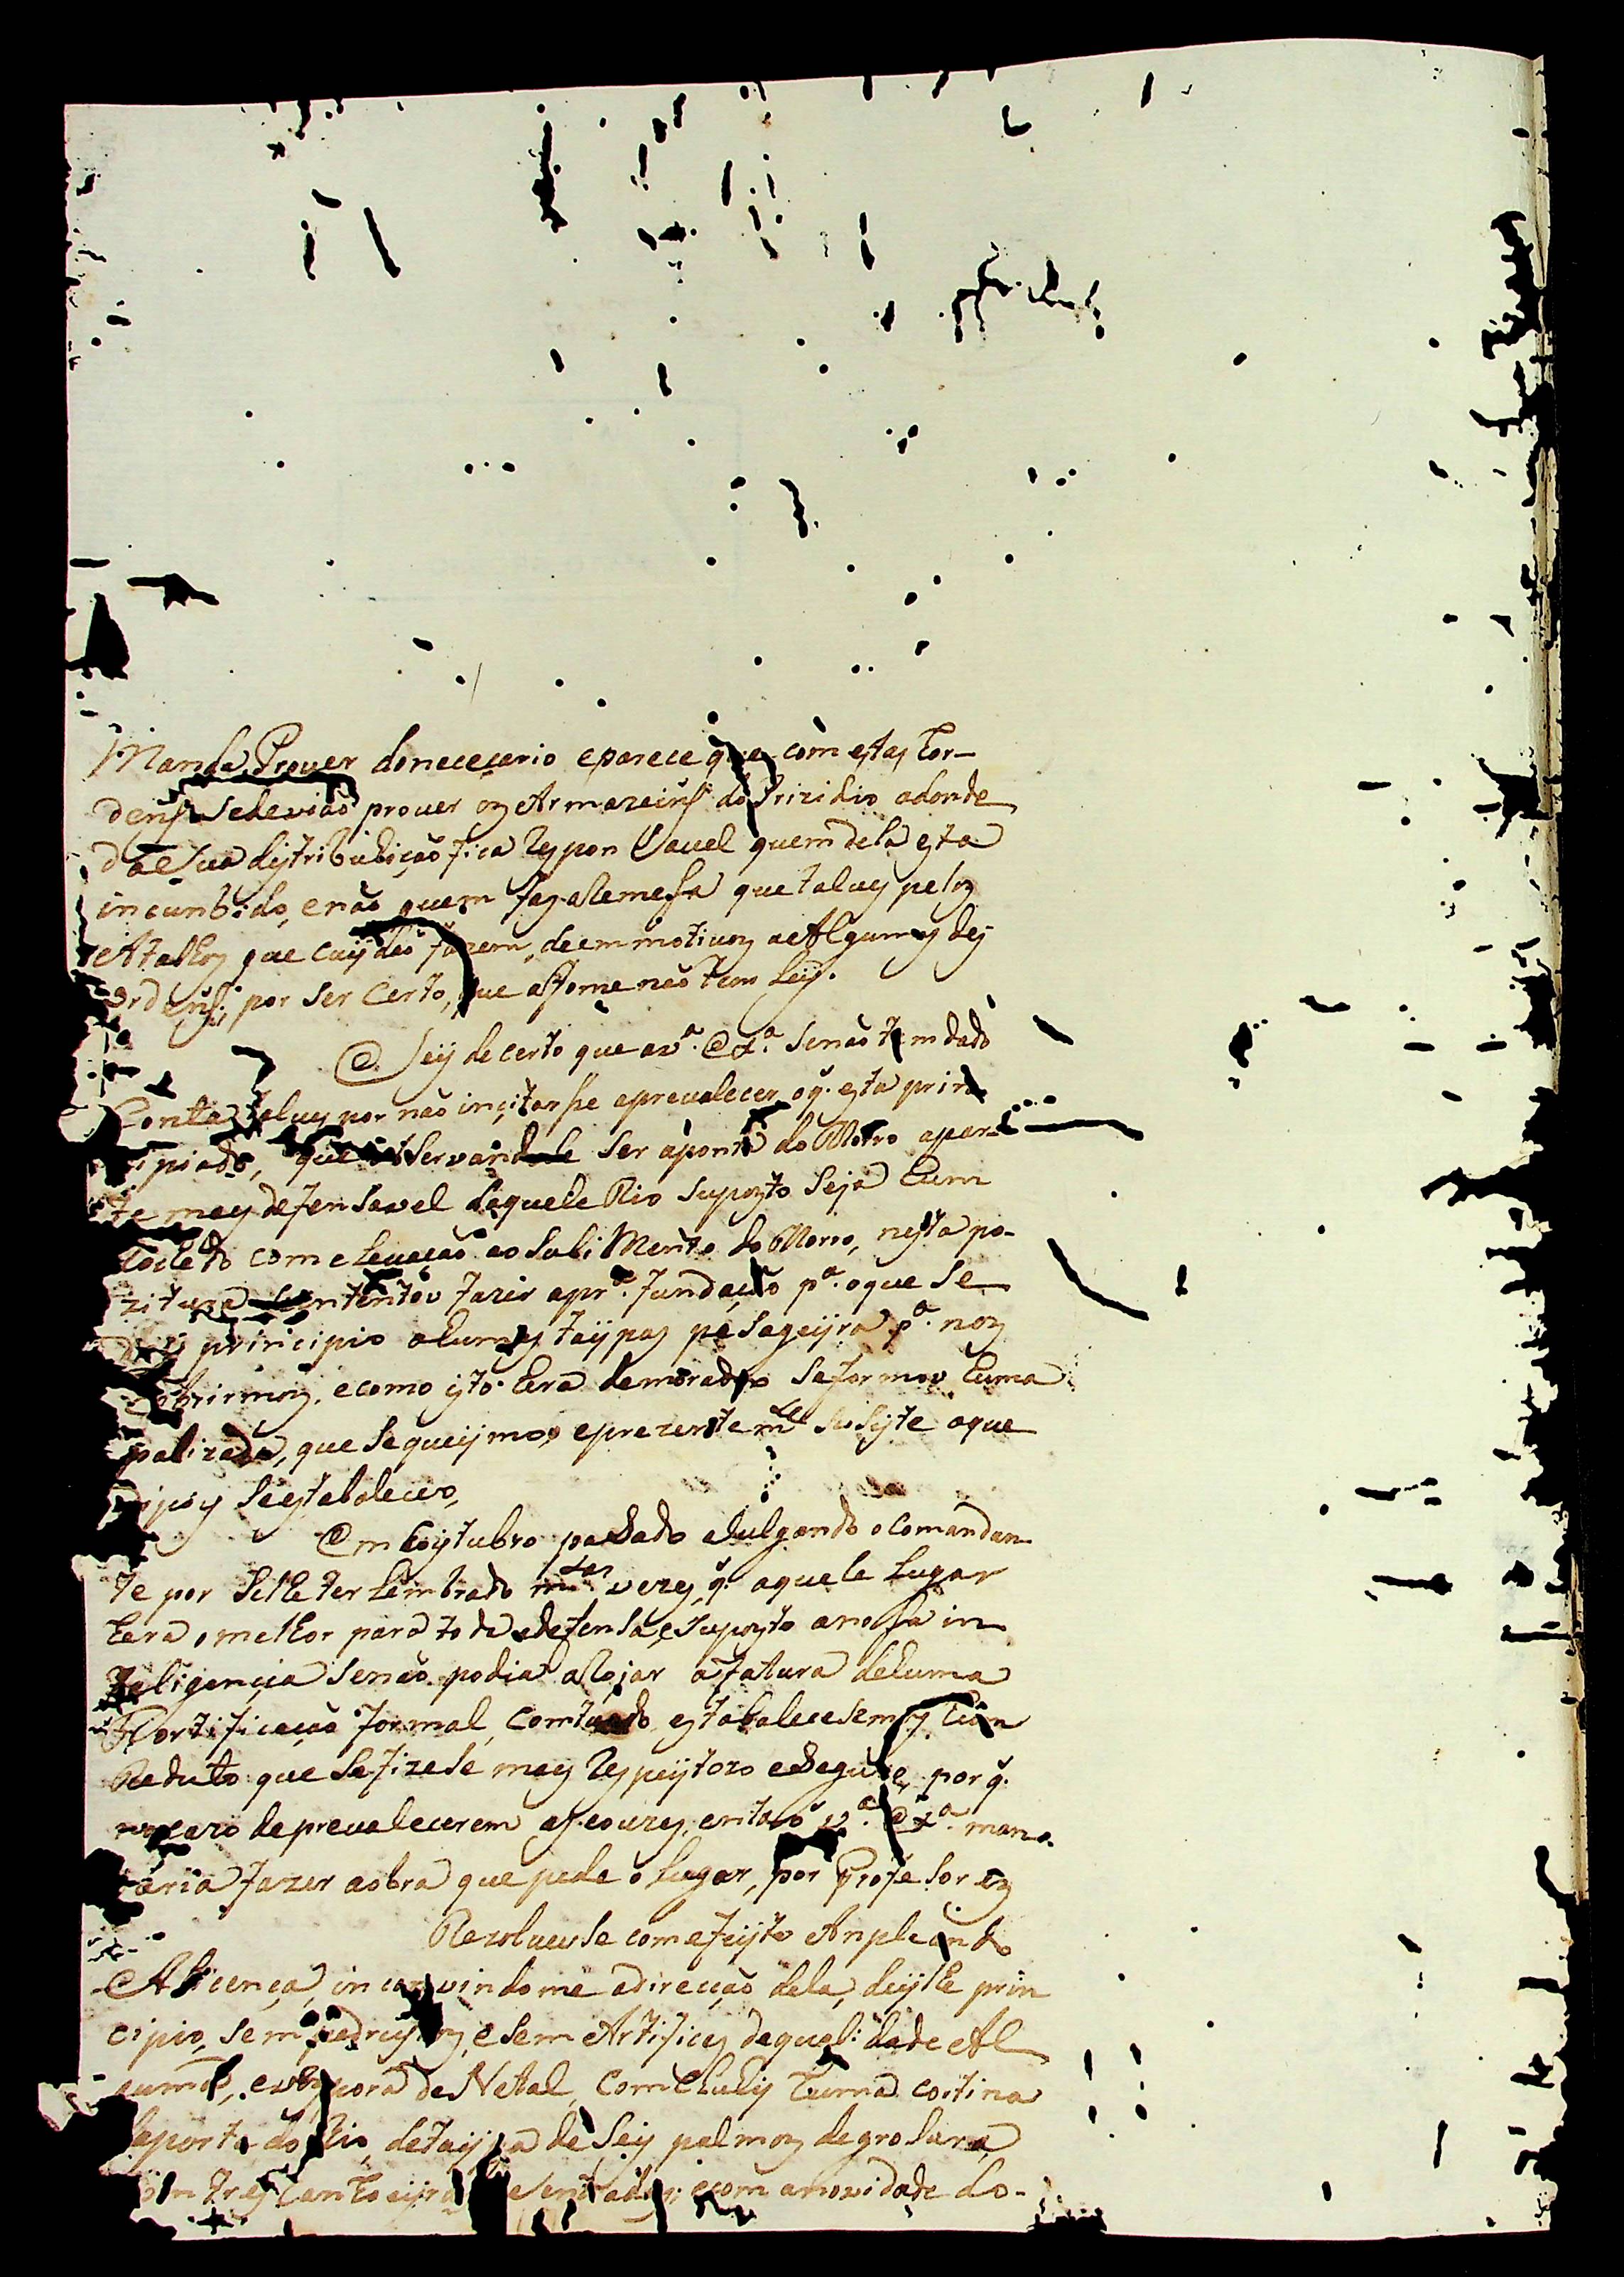 Manda Prover donececario eparece que com estas hor-
dens sedeviaõ prover os Armazeins do Prizidio adonde
da e sua distribubiçaõ fica Respon Savel quem dela esta
incunbido, e naõ quem faz a Remesa que talves pelos
Atalhos que cuijdaõ fazem, deem motivos a Algumas des
ordens, por ser Certo, que a fome naõ tem Leij.
E Seij de certo que a vª. Exª. senaõ tem dado
Conta talves por naõ inçitarse aprevalecer, oq. esta prin
sipiado, que observandose ser aponta do Morro apar-
te mays defensavel daquele Rio suposto seja hum
com elevaçaõ ao subi Mento do Morro, nesta po-
zitura se intentou fazer aprª. fundaçaõ pª. oque se
deu principio a humas taijpas pª. nos
cobrirmos, ecomo isto hera demorado se formou huma
palizada, que sequeijmou eprezentemte. sosiste aque
depois sestabaleceo,
Em hoytubro pasado aJulgando o Comandan
te por selhe ter Lembrado mtas. vezes, q. aquele Lugar
hera o melhor para toda adefensa, esuposto anosa in
teligencia senaõ podia alojar afatura dehuma
Fortificaçaõ formal, Comtudo estabalecesemos hum
Reduto que sefizese mays Respeijtozo eSeguro, por q.
no cazo deprevalecerem as couzas, entaõ vª. Exª. man-
daria fazer aobra que pede o Lugar, por Profesores
Rezolveuse com efeijto Anpleando
A licença, incunvindome adirecçaõ dela, deijlhe prin
cipio, sem pedreijros, e sem Artifices dequalidade Al
guma, evespora de Natal, Comcluhij huma cortina
daporta do Rio, detaijpa de seij palmos degrosura,
com tres Canhoeijras e com anovidade do-